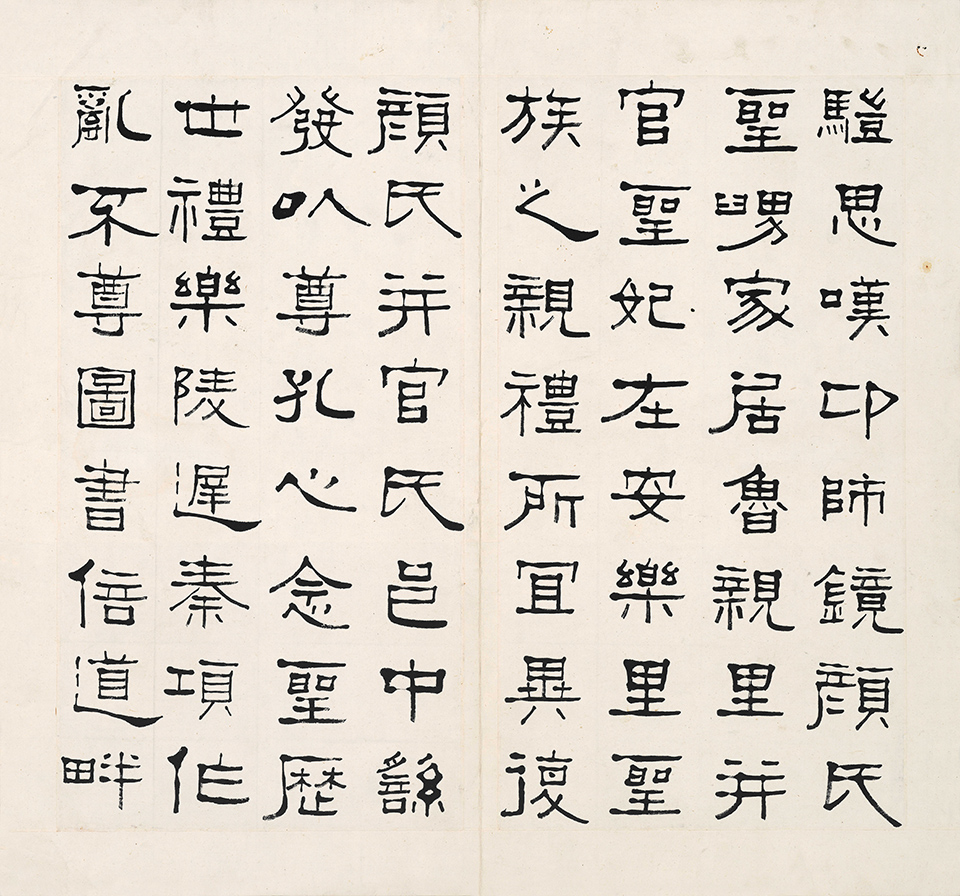 驥思嘆卬師鏡顏氏
聖舅家居魯親里并
官聖妃在安樂里聖
族之親禮所宜異復
顏氏并官氏邑中繇
發以尊孔心念聖歷
世禮樂陵遲秦項作
亂不尊圖書倍道畔